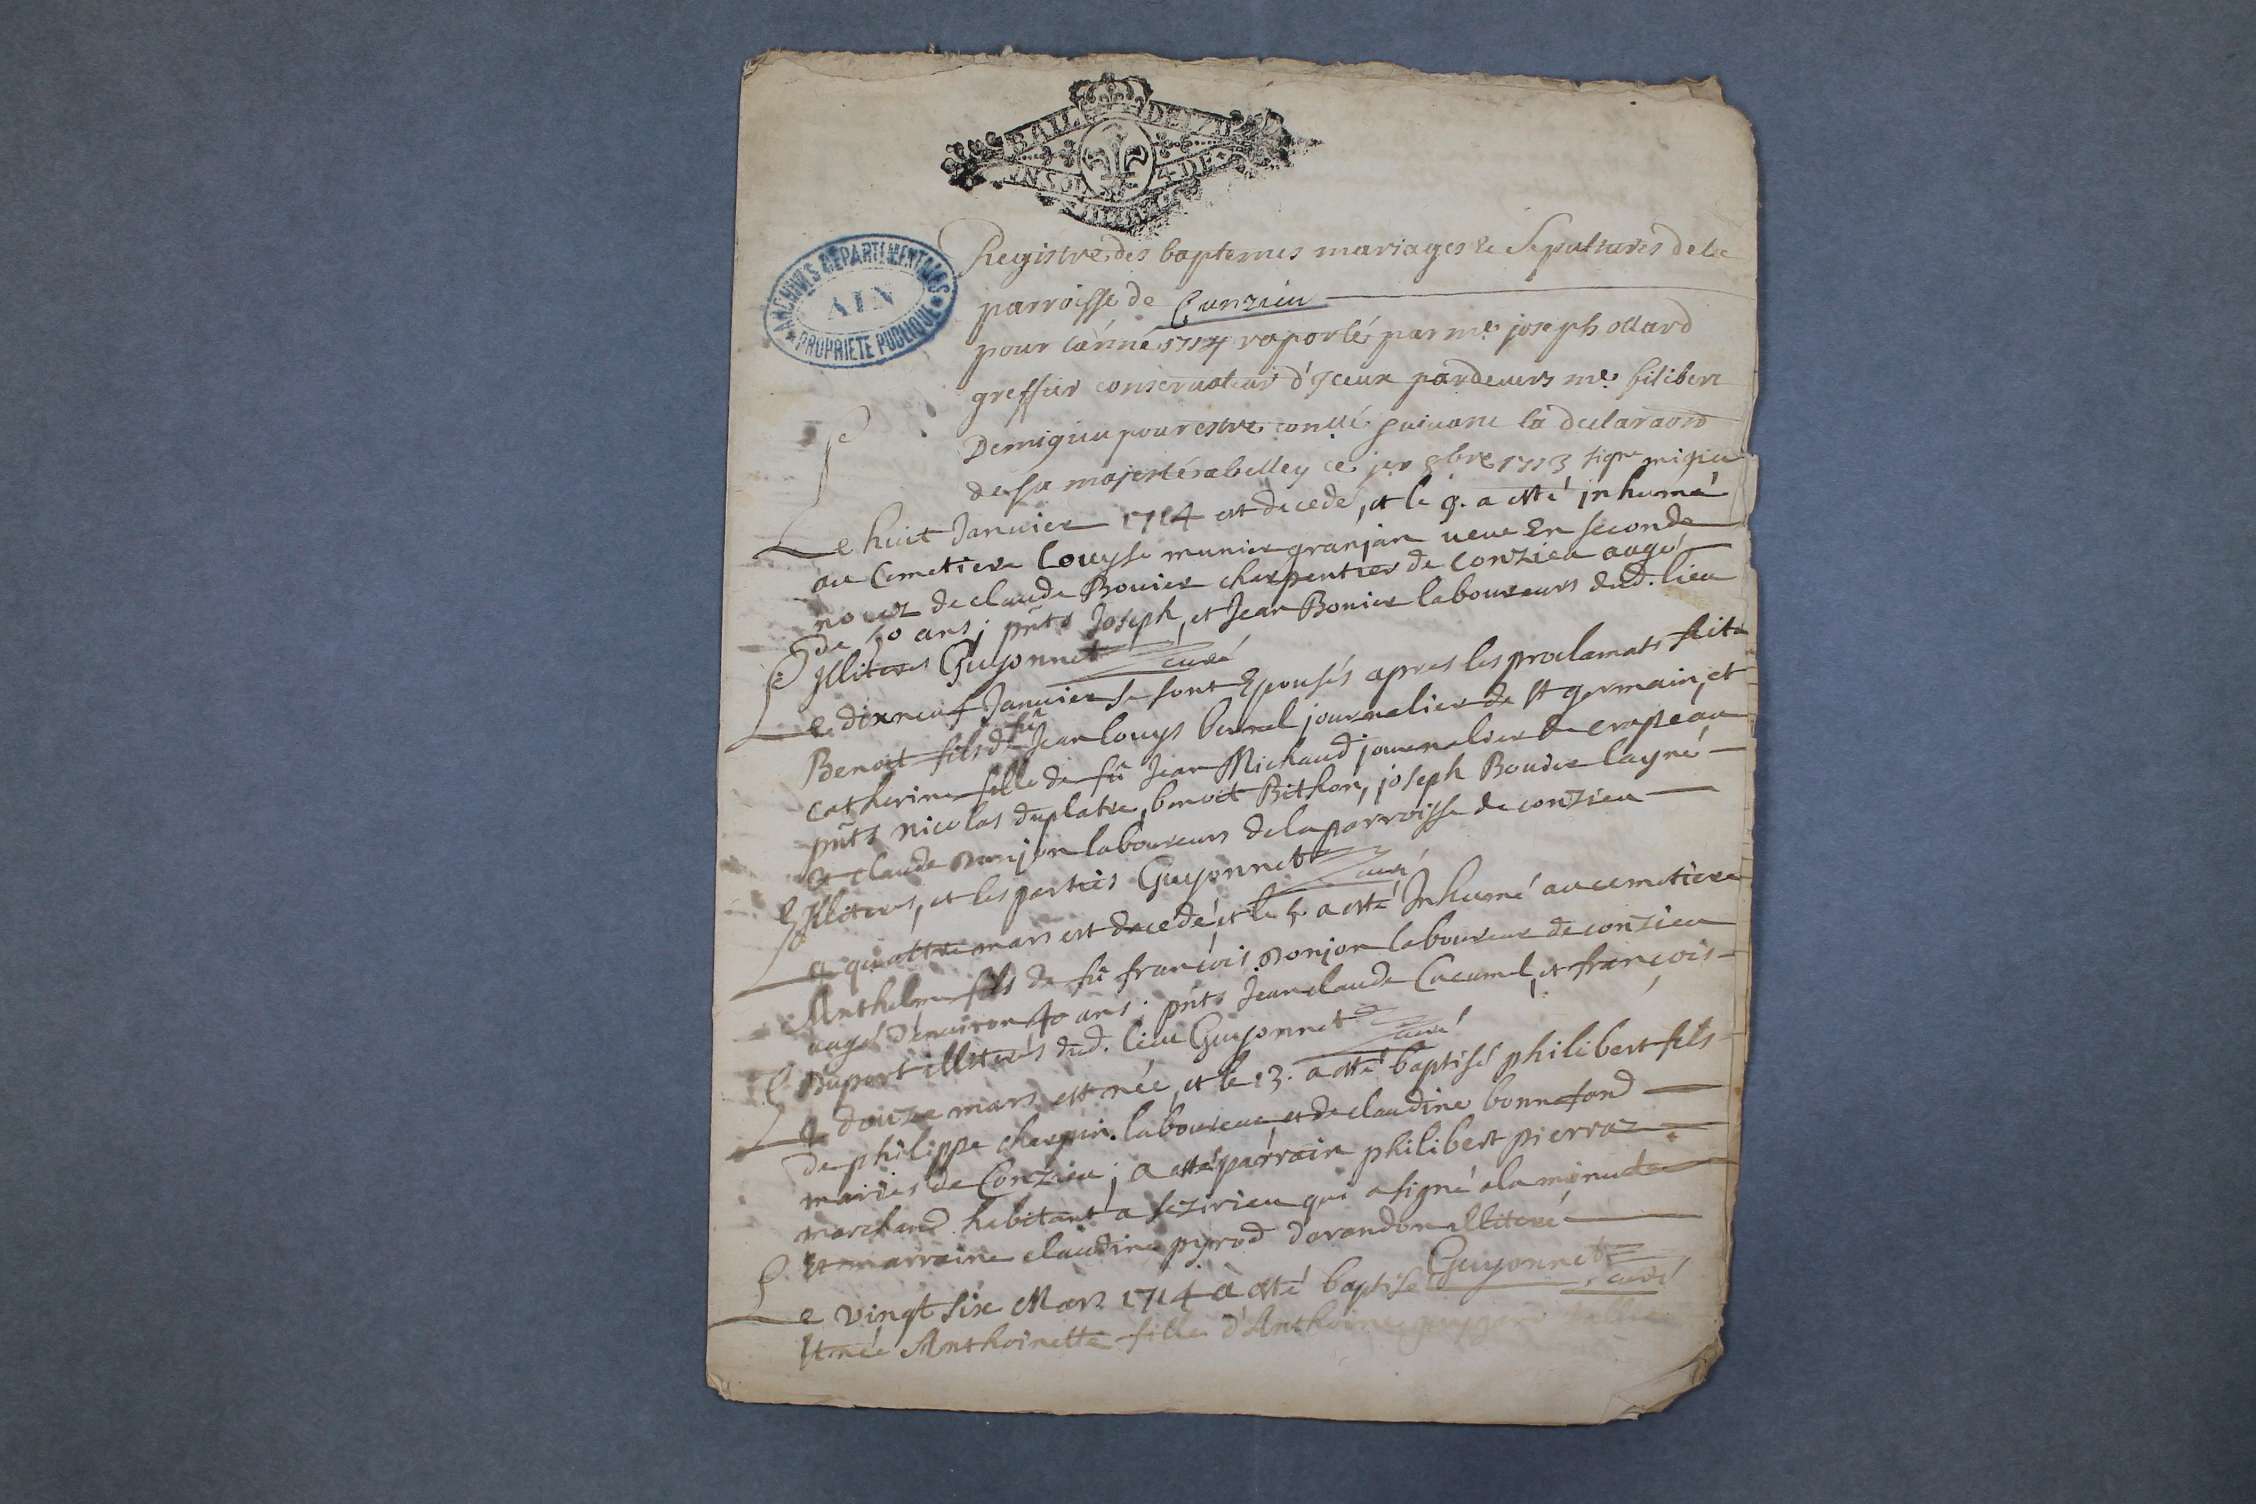 BAIL DE
UN SOL 4 DE
ARCHIVES DEPARTEMENTALES
AIN
PROPRIETE PUBLIQUE
Registre des baptemes mariages & Sepultures de la
parroisse de Conzieu
pour l'année 1714 raporté par me. joseph ollard
greffier conservateur d'iceux pardevers me. filibert
Demigieu pour estre suivant la declaraon
de sa majesté a belley ce jer 8bre 1713 signe migieu
Le huit Janvier 1714 est decede, et le 9. a esté inhumé
au Cemetiere Louyse munier granjan veue En seconde
nocez de claude Bovier charpentier de Conzieu aagé
de 70 ans; pnts Joseph, et Jean Bovier laboureurs dud. lieu
Illiteres Guyonnet curé
Le dixneuf Janvier se sont Epousés apres les proclamats faits
Benoit fils de fû Jean louys journalier de st germain, et
catherine fille de fû Jean Michaud journalier de crapeau
pnts Nicolas duplatre, benoit Bithon, joseph Bovier layné
& claude Donjon laboureurs de la parroisse de conzieu
Illiteres, et les parties Guyonnet curé
Le quattre mars est decedé, et le 5 a esté Inhumé au cemetiere
Anthelme fils de fû françois Donjon laboureur de conzieu
aagé d'environ 40 ans; pnts Jean claude Cacumel, et françois
Duport illiterés dud. lieu Guyonnet curé
Le douze mars est née, et le 13. a esté baptisé philibert fils
de philippe charpin laboureur, et de claudine bonnefond
mariés de Conzieu; a esté parrain philibert pierraz
marchand habitant a sezirieu qui a signé a la minude
Et marraine claudine pyrod d'arandon illiteré
Guyonnet curé
Le vingt six Mars 1714 a esté baptise
Et née Anthoinette fille d'Anthoine